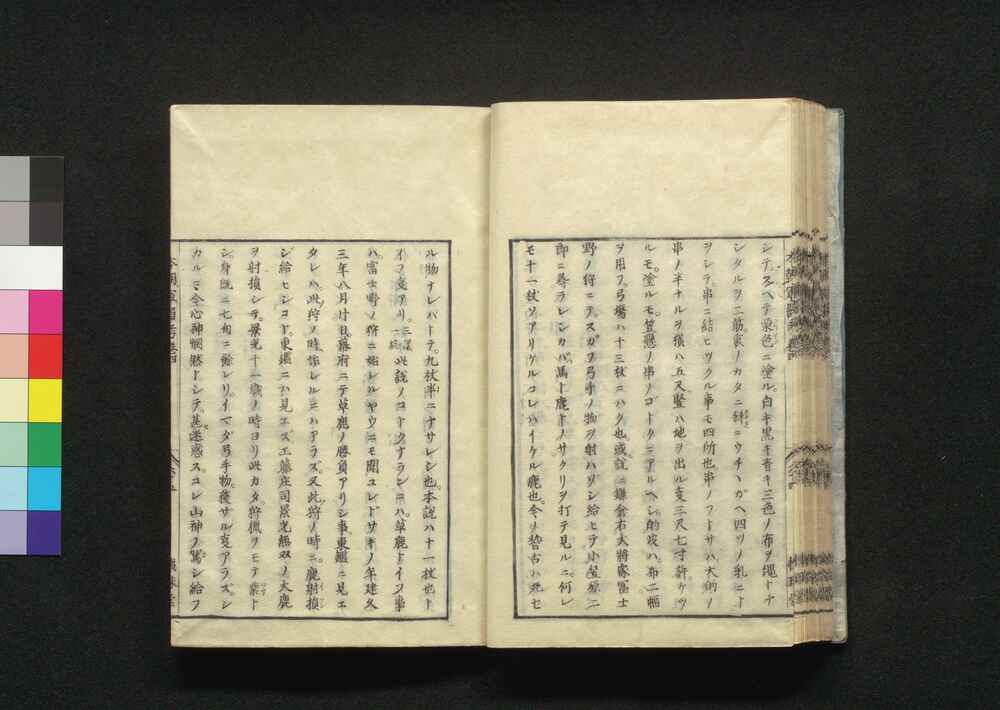 シテスヘテ東色ニ塗ル白キ黒キ青キ三色ノ布ヲ縄トナ
シタルヲ二筋表ノカタニ斜ニウチチガヘ四ツノ乳ニト
ヲシテ串ニ結ヒツクル串モ四所也串ノフトサハ大的ノ
串ノ半ナルヲ横ハ五又竪ハ地ヲ出ル支三尺七寸許ケツ
ルモ塗ルモ笠懸ノ串ノゴトクニアルヘシ的皮ハ布二幅
ヲ用フ弓場ハ十三杖ニハク也或説ニ鎌倉右大将家冨士
野ノ狩ニテスガヲ弓手ノ物ヲ射ハヅシ給ヒテ小笠原二
郎ニ尋ラレシカバ萬ト鹿トノサクリヲ打テ見ルニ何レ
モ十一杖ソアリケルコレハイケル鹿也今ノ稽古ハ死セ
ル物ナレバトテ九杖半ニナサレシ也本説ハ十一杖也ト
イフ支アリ此説ノコトクナランニハ草鹿トイフ事
ハ富士野ノ狩ニ始レルヤウニモ聞ユレドサキノ年建久
三年八月廿日幕府ニテ草鹿ノ勝負アリシ事東鑑ニ見エ
タレハ此狩ノ時作レルニハアラズ又此狩ノ時ニ鹿射損
シ給ヒシコト東鑑ニハ見エス工藤庄司景光無双ノ大鹿
ヲ射損シテ景光十一歳ノ時ヨリ此カタ狩猟ヲモテ業ト
シ身既ニ七旬ニ餘レリイマダ弓手物獲サル支アラズシ
カルニ今心神惘然トシテ甚迷惑スコレ山神ノ駕シ給フ